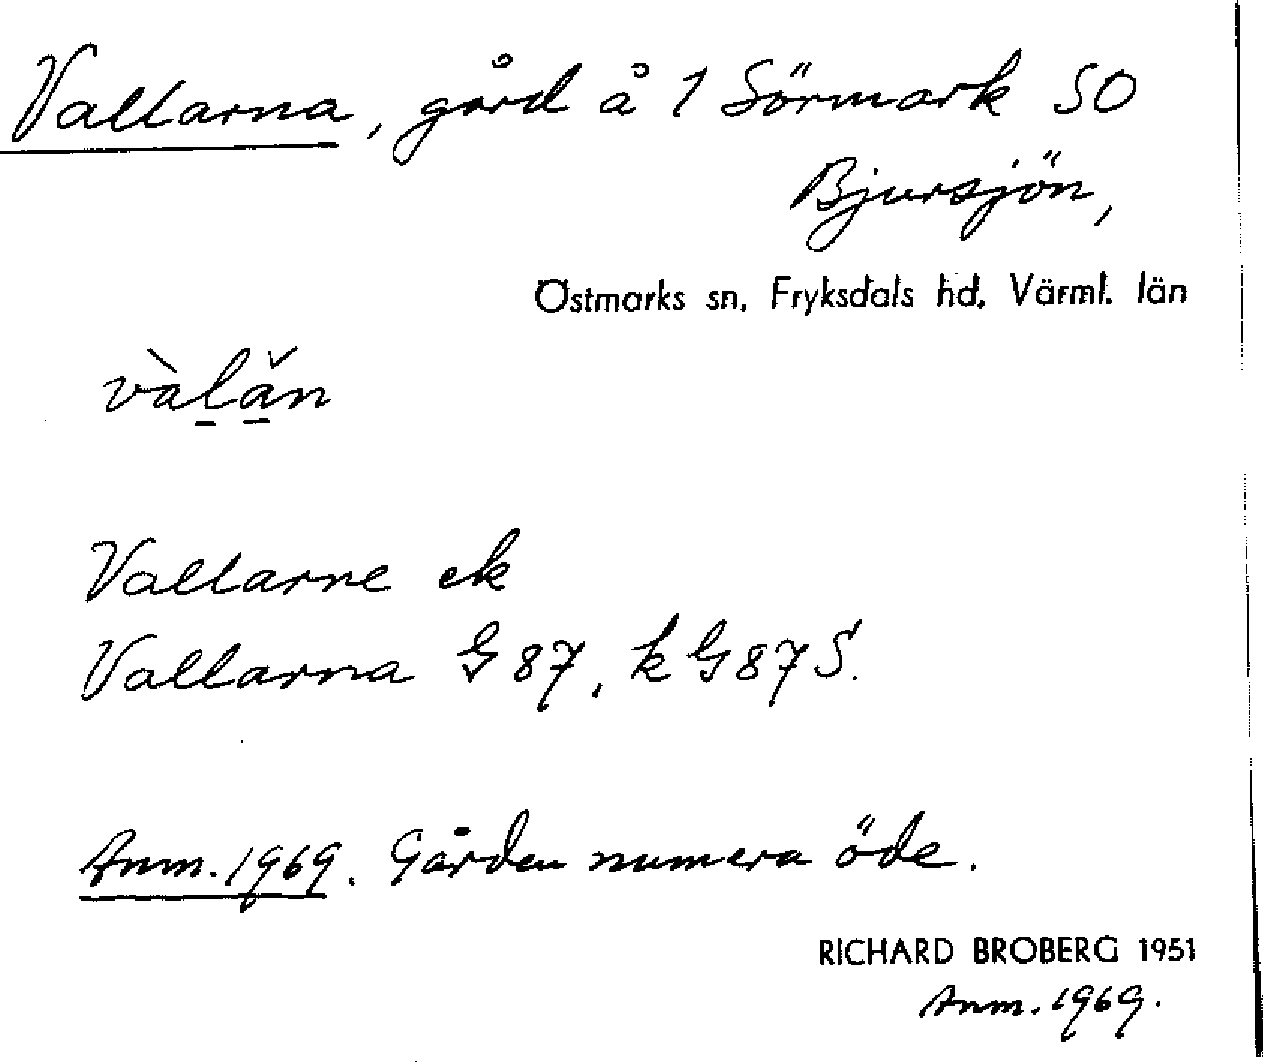 Vallarna, gård å 1 Sörmark SO
Bjursjön,
Östmarks sn, Fryksdals hd, Värml. län
vàl̠ǎ̠n
Vallarne ek
Vallarna G 87, k G 87 S.
Anm. 1969. Gården numera öde.
RICHARD BROBERG 1951
Anm. 1969.